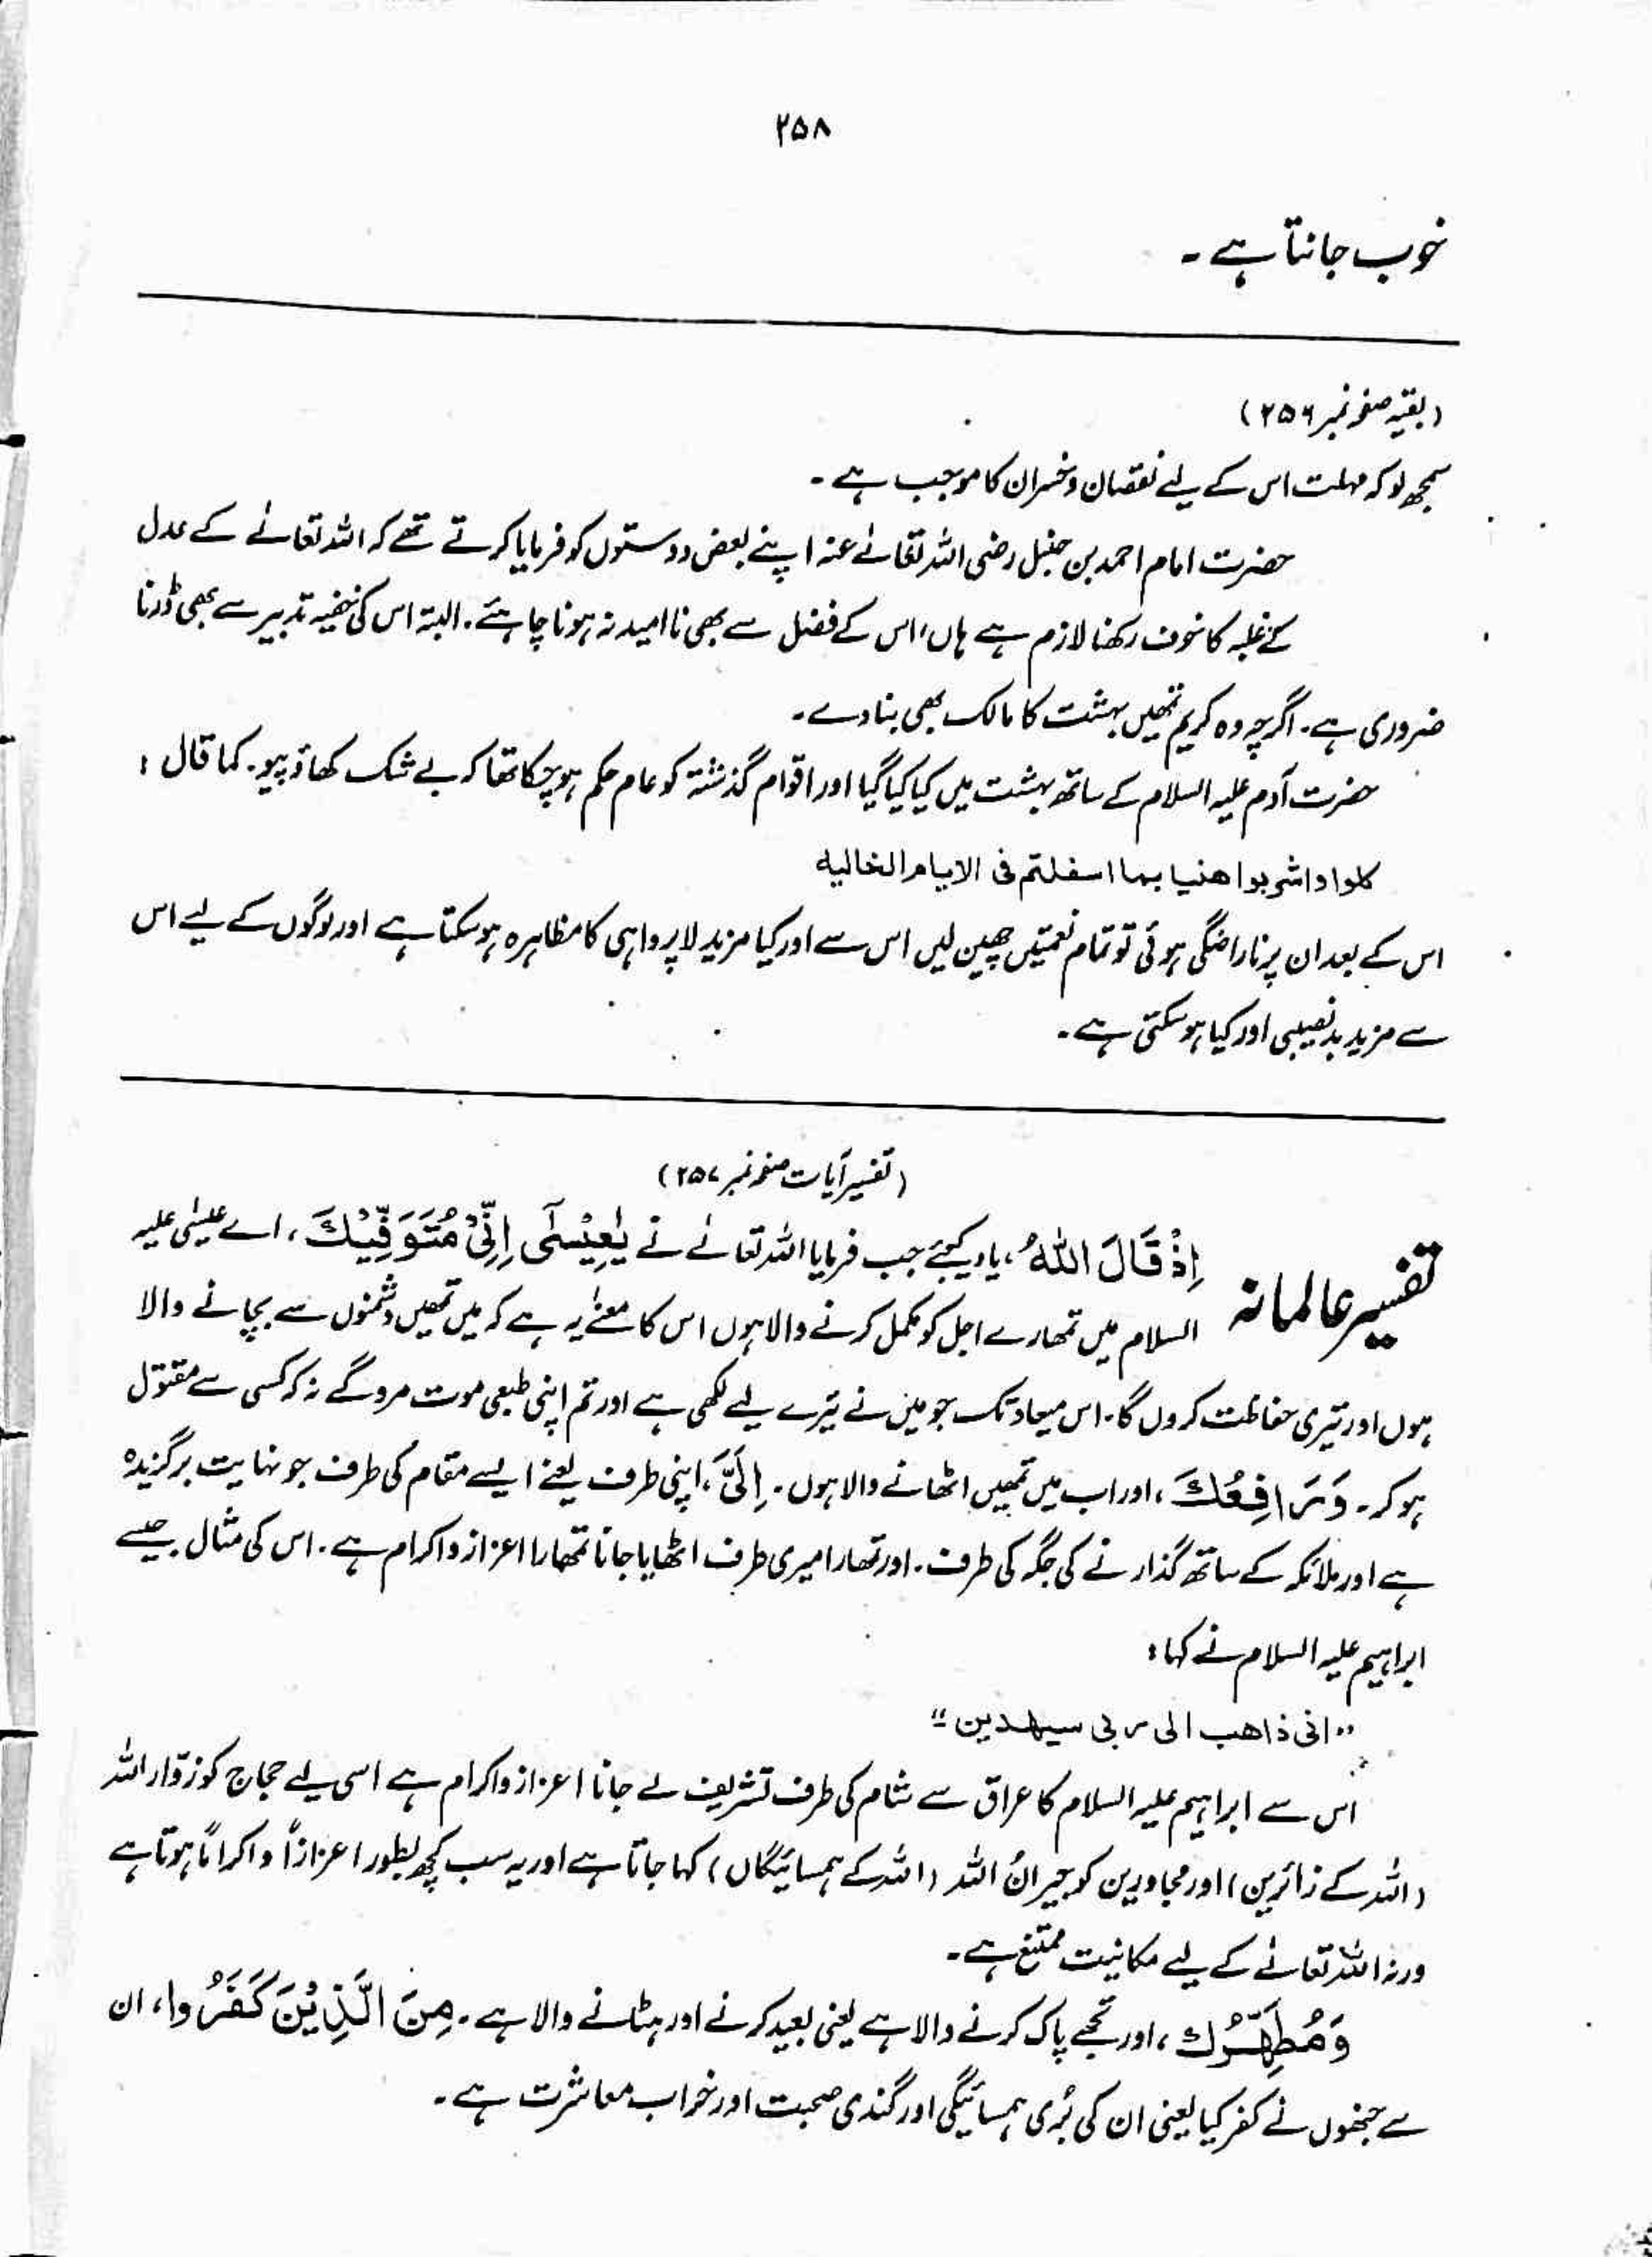 ۲۵۸
خوب جانتا ہے ۔
(بقیہ صفحہ نمبر ۲۵۶)
سمجھ لو کہ مہلت اس کے لیے نقصان و خسران کا موجب ہے ۔
حضرت امام احمد بن حنبل رضی اللہ تعالٰے عنہ اپنے بعض دوستوں کو فرمایا کرتے تھے کہ اللہ تعالٰے کے عدل
کے غلبہ کا خوف رکھنا لازم ہے ہاں، اس کے فضل سے بھی نا امید نہ ہونا چاہئے ۔ البتہ اس کی خفیہ تدبیر سے بھی ڈرنا
ضروری ہے ۔ اگرچہ وہ کریم تمھیں بہشت کا مالک بھی بنا دے ۔
حضرت آدم علیہ السلام کے ساتھ بہشت میں کیا کیا گیا اور اقوام گذشتہ کو عام حکم ہو چکا تھا کہ بے شک کھاؤ پیو ۔ کما قال :
کلوا واشربوا ھنیا بما اسفلتم فی الایام الخالیہ
اس کے بعد ان پر ناراضگی ہوئی تو تمام نعمتیں چھین لیں اس سے اور کیا مزید لا پرواہی کا مظاہرہ ہو سکتا ہے اور لوگوں کے لیے اس
سے مزید بدنصیبی اور کیا ہو سکتی ہے ۔
(تفسیر آیات صفحہ نمبر ۲۵۷)
تفسیر عالمانہ اِذْ قَالَ اللّٰهُ ، یاد کیجئے جب فرمایا اللہ تعالٰے نے یٰعِیْسٰۤی اِنِّیْ مُتَوَفِّیْكَ ، اے عیسٰی علیہ
السلام میں تمھارے اجل کو مکمل کرنے والا ہوں اس کا معنٰے یہ ہے کہ میں تمھیں دشمنوں سے بچانے والا
ہوں اور تیری حفاظت کروں گا ۔ اس میعاد تک جو میں نے تیرے لیے لکھی ہے اور تم اپنی طبعی موت مرو گے نہ کہ کسی سے مقتول
ہو کر ۔ وَرَافِعُكَ ، اور اب میں تمھیں اٹھانے والا ہوں ۔ اِلَیَّ ، اپنی طرف یعنے ایسے مقام کی طرف جو نہایت برگزیدہ
ہے اور ملائکہ کے ساتھ گذارنے کی جگہ کی طرف ۔ اور تمھارا میری طرف اٹھایا جانا تمھارا اعزاز و اکرام ہے ۔ اس کی مثال جیسے
ابراہیم علیہ السلام نے کہا :
" انی ذاھب الی ربی سیھدین "
اس سے ابراہیم علیہ السلام کا عراق سے شام کی طرف تشریف لے جانا اعزاز و اکرام ہے اسی لیے حجاج کو زوّار اللہ
(اللہ کے زائرین) اور مجاورین کو جیرانُ اللہ (اللہ کے ہمسائیگاں) کہا جاتا ہے اور یہ سب کچھ بطور اعزازاً و اکراماً ہوتا ہے
ورنہ اللہ تعالٰے کے لیے مکانیت ممتنع ہے ۔
وَمُطَهِّرُكَ ، اور تجھے پاک کرنے والا ہے یعنی بعید کرنے اور ہٹانے والا ہے ۔ مِنَ الَّذِیْنَ كَفَرُوا ، ان
سے جنھوں نے کفر کیا یعنی ان کی بُری ہمسائیگی اور گندی صحبت اور خراب معاشرت ہے ۔